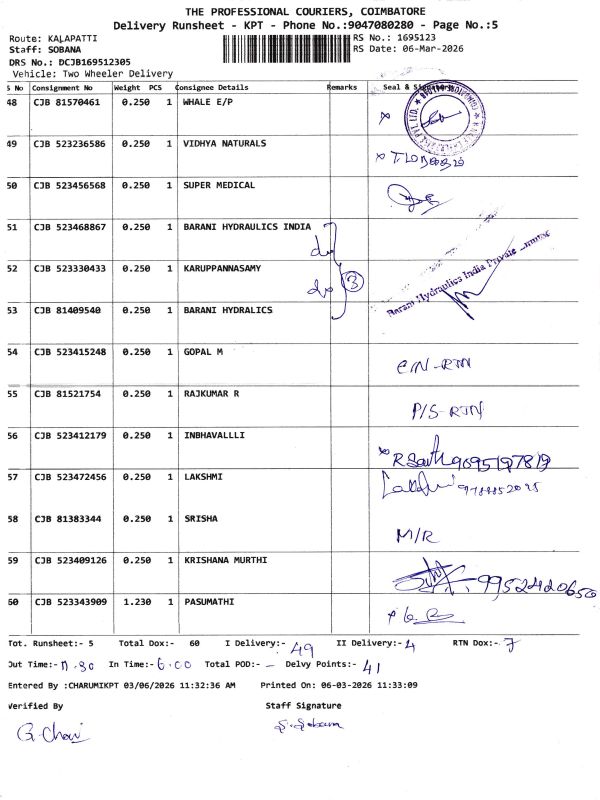 THE PROFESSIONAL COURIERS, COIMBATORE
Delivery Runsheet - KPT - Phone No.:9047080280 - Page No.:5
Route: KALAPATTI RS No.: 1695123
Staff: SOBANA RS Date: 06-Mar-2026
DRS No.: DCJB169512305
Vehicle: Two Wheeler Delivery
S No Consignment No Weight PCS Consignee Details Remarks Seal &
48 CJB 81570461 0.250 1 WHALE E/P
49 CJB 523236586 0.250 1 VIDHYA NATURALS
50 CJB 523456568 0.250 1 SUPER MEDICAL
51 CJB 523468867 0.250 1 BARANI HYDRAULICS INDIA
52 CJB 523330433 0.250 1 KARUPPANNASAMY 3 Barani Hydraulics India Private Limited
53 CJB 81409540 0.250 1 BARANI HYDRALICS
54 CJB 523415248 0.250 1 GOPAL M C/N-RTN
55 CJB 81521754 0.250 1 RAJKUMAR R P/S-RTN
56 CJB 523412179 0.250 1 INBHAVALLLI
57 CJB 523472456 0.250 1 LAKSHMI
58 CJB 81383344 0.250 1 SRISHA M/R
59 CJB 523409126 0.250 1 KRISHANA MURTHI 9952420650
60 CJB 523343909 1.230 1 PASUMATHI
Tot. Runsheet:- 5 Total Dox:- 60 I Delivery:- 49 II Delivery:- 4 RTN Dox:- 7
Out Time:- 11.30 In Time:- 6.00 Total POD:- - Delvy Points:- 41
Entered By :CHARUMIKPT 03/06/2026 11:32:36 AM Printed On: 06-03-2026 11:33:09
Verified By Staff Signature